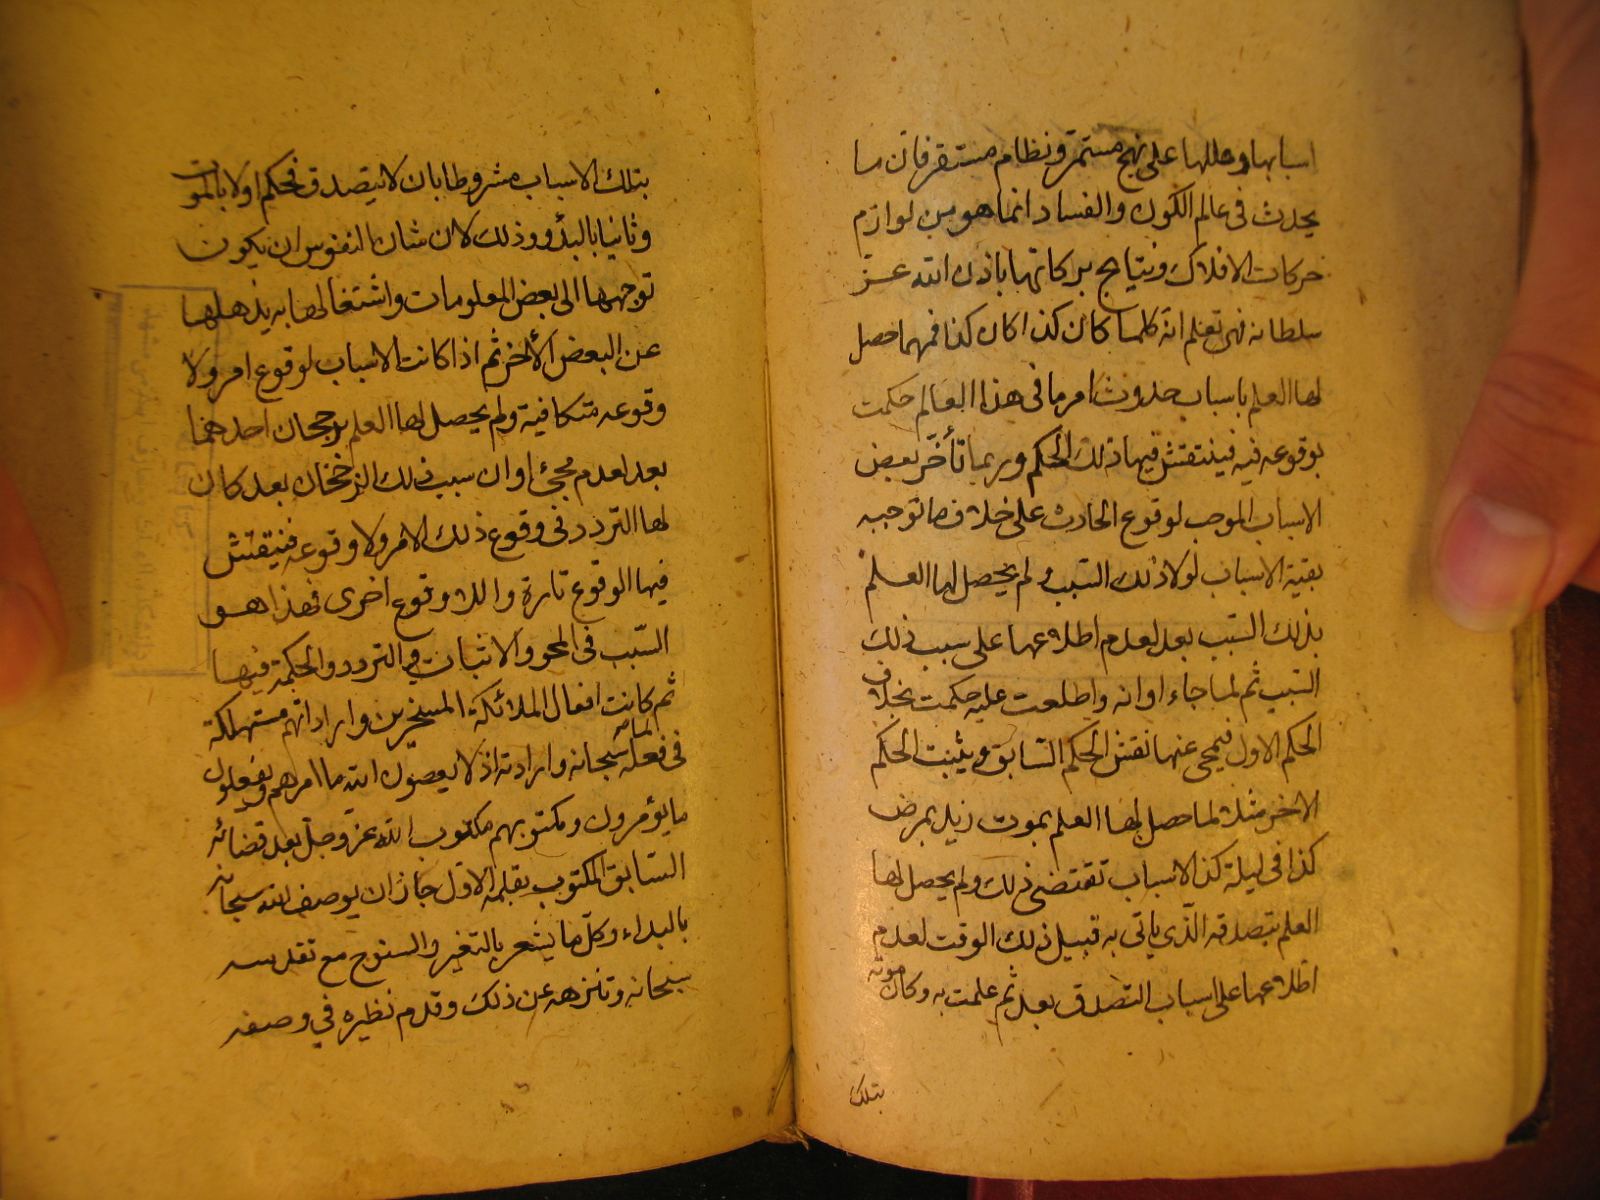 اسبابها وعللها على نهج مستمر ونظام مستقر فان ما
يحدث فى عالم الكون والفساد انما هو من لوازم
حركات الافلاك ونتايج بركاتها باذن الله عز
سلطانه فهى تعلم انه كلما كان كذا كان كذا فمهما حصل
لها العلم باسباب حدوث امر ما فى هذا العالم حكمت
بوقوعه فيه فينتقش فيها ذلك الحكم وربما تأخر بعض
الاسباب الموجب لوقوع الحادث على خلاف ما توجبه
بقية الاسباب لولا ذلك السبب ولم يحصل لها العلم
بذلك السبب بعد لعدم اطلاعها على سبب ذلك
السبب ثم لما جاء اوانه واطلعت عليه حكمت بخلاف
الحكم الاول فيمحى عنها نقش الحكم السابق ويثبت الحكم
الاخر مثلا لما حصل لها العلم بموت زيد بمرض
كذا فى ليلة كذا لاسباب تقتضى ذلك ولم يحصل لها
العلم بتصدقه الذى ياتى به قبيل ذلك الوقت لعدم
اطلاعها على اسباب التصدق بعد ثم علمت به وكان موته
بتلك
بتلك الاسباب مشروطا بان لا يتصدق فحكم اولا بالموت
وثانيا بالبرؤ وذلك لان شان النفوس ان يكون
توجهها الى بعض المعلومات واشتغالها به يذهلها
عن البعض الأخر ثم اذا كانت الاسباب لوقوع امر ولا
وقوعه متكافية ولم يحصل لها العلم برجحان احدهما
بعد لعدم مجئ اوان سبب ذلك الرجحان بعد كان
لها التردد فى وقوع ذلك الامر ولا وقوعه فينتقش
فيها الوقوع تارة واللا وقوع اخرى فهذا هو
السبب فى المحو والاثبات فى التردد والحكمة فيها
ثم كانت افعال الملائكة المسخرين واراداتهم مستهلكة
فى فعله سبحانه وارادته اذ لا يعصون الله ما امرهم ويفعلون
ما يؤمرون ومكتوبهم مكتوب الله عز وجل بعد قضائه
السابق المكتوب بقلمه الاول جاز ان يوصف الله سبحانه
بالبداء وكل ما يشعر بالتغير والسنوح مع تقدسه
سبحانه وتنزهه عن ذلك وقدم نظيره في وصفه